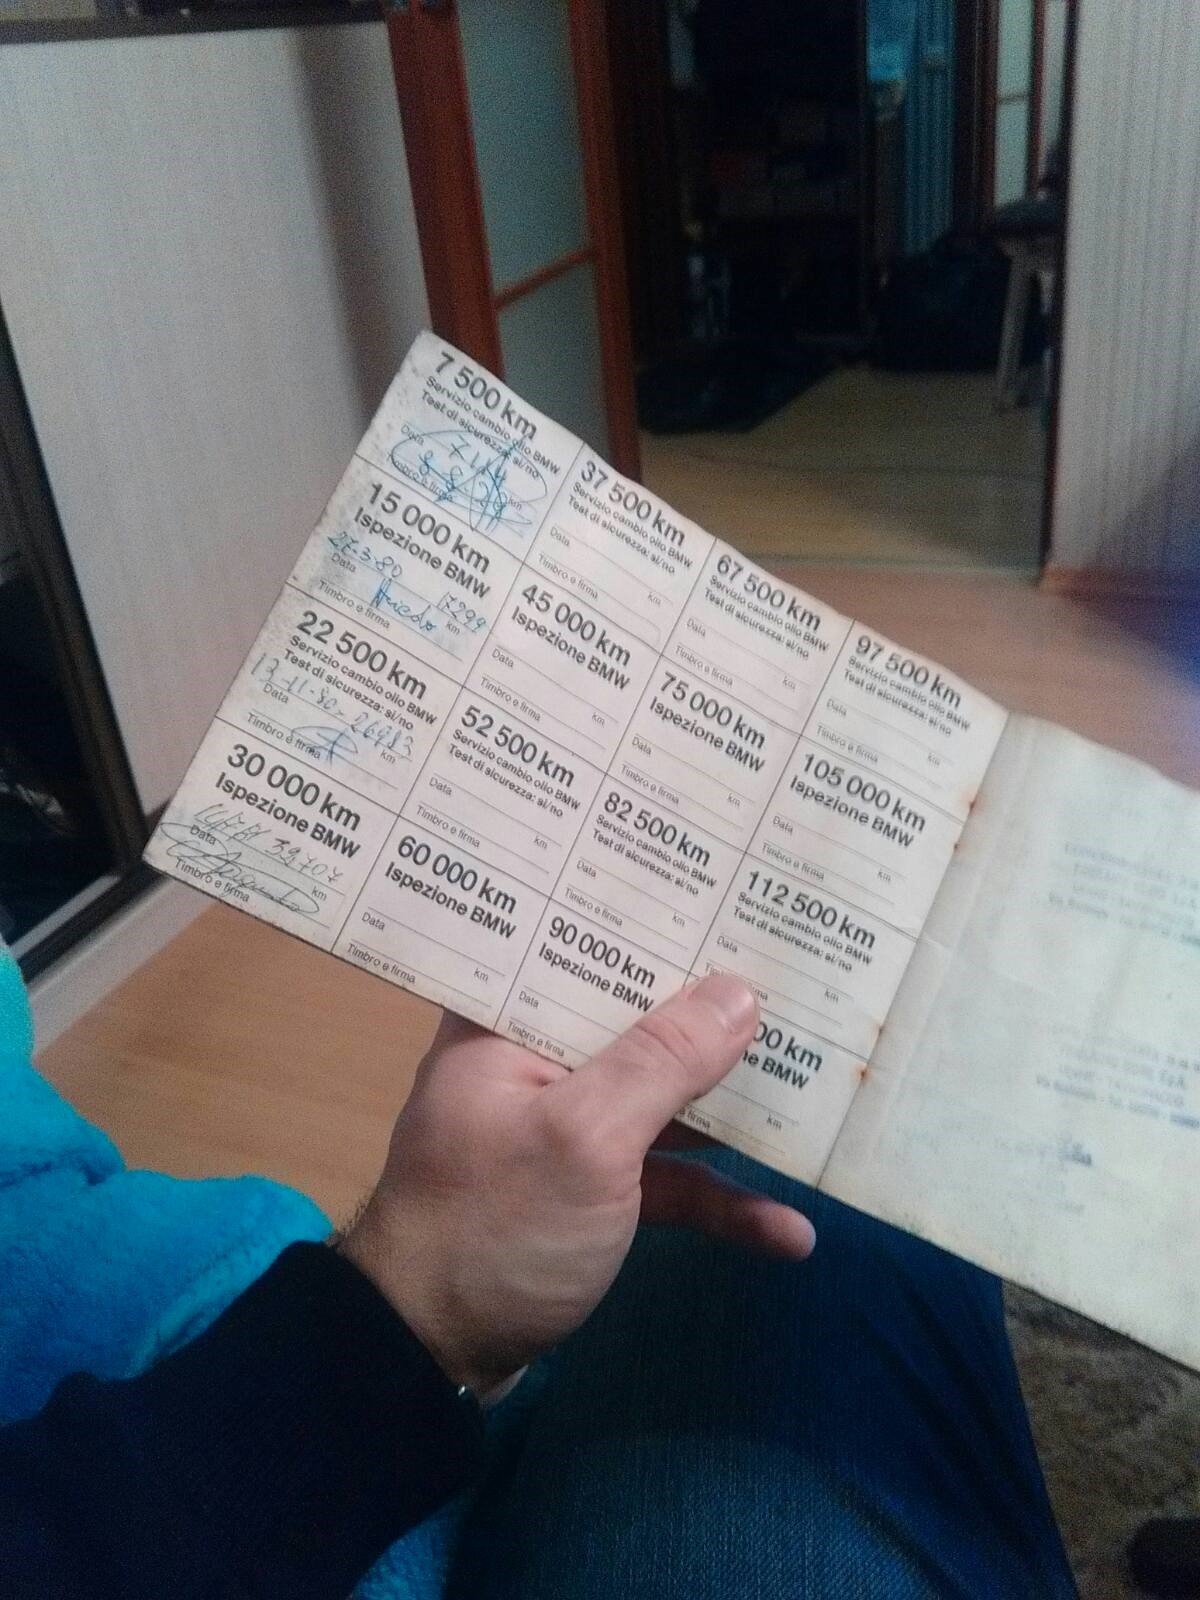 7 500 km
Servizio cambio olio BMW
Test di sicurezza: si/no
Data
km
Timbro e firma
15 000 km
Ispezione BMW
27-3-80
Data
km
Timbro e firma
22 500 km
Servizio cambio olio BMW
Test di sicurezza: si/no
Data
km
Timbro e firma
30 000 km
Ispezione BMW
39707
Data
km
Timbro e firma
37 500 km
Servizio cambio olio BMW
Test di sicurezza: si/no
Data
km
Timbro e firma
45 000 km
Ispezione BMW
Data
km
Timbro e firma
52 500 km
Servizio cambio olio BMW
Test di sicurezza: si/no
Data
km
Timbro e firma
60 000 km
Ispezione BMW
Data
km
Timbro e firma
67 500 km
Servizio cambio olio BMW
Test di sicurezza: si/no
Data
km
Timbro e firma
75 000 km
Ispezione BMW
Data
km
Timbro e firma
82 500 km
Servizio cambio olio BMW
Test di sicurezza: si/no
Data
km
Timbro e firma
90 000 km
Ispezione BMW
Data
Timbro e firma
97 500 km
Servizio cambio olio BMW
Test di sicurezza: si/no
Data
km
Timbro e firma
105 000 km
Ispezione BMW
Data
km
Timbro e firma
112 500 km
Servizio cambio olio BMW
Test di sicurezza: si/no
Data
km
00 km
ne BMW
km
firma